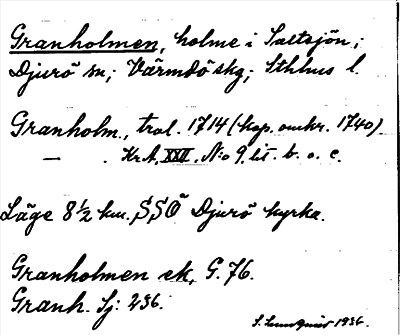 Granholmen, holme i Saltsjön;
Djurö sn; Värmdö skg; Sthlms l.
Granholm, trol. 1714 (kop. omkr. 1740).
— . Kr A. XXII. No 9, lit. b. o. c.
Läge 8½ km. SSÖ Djurö kyrka.
Granholmen ek, G. 76.
Granh. Sj: 236.
S. Lundquist 1936.